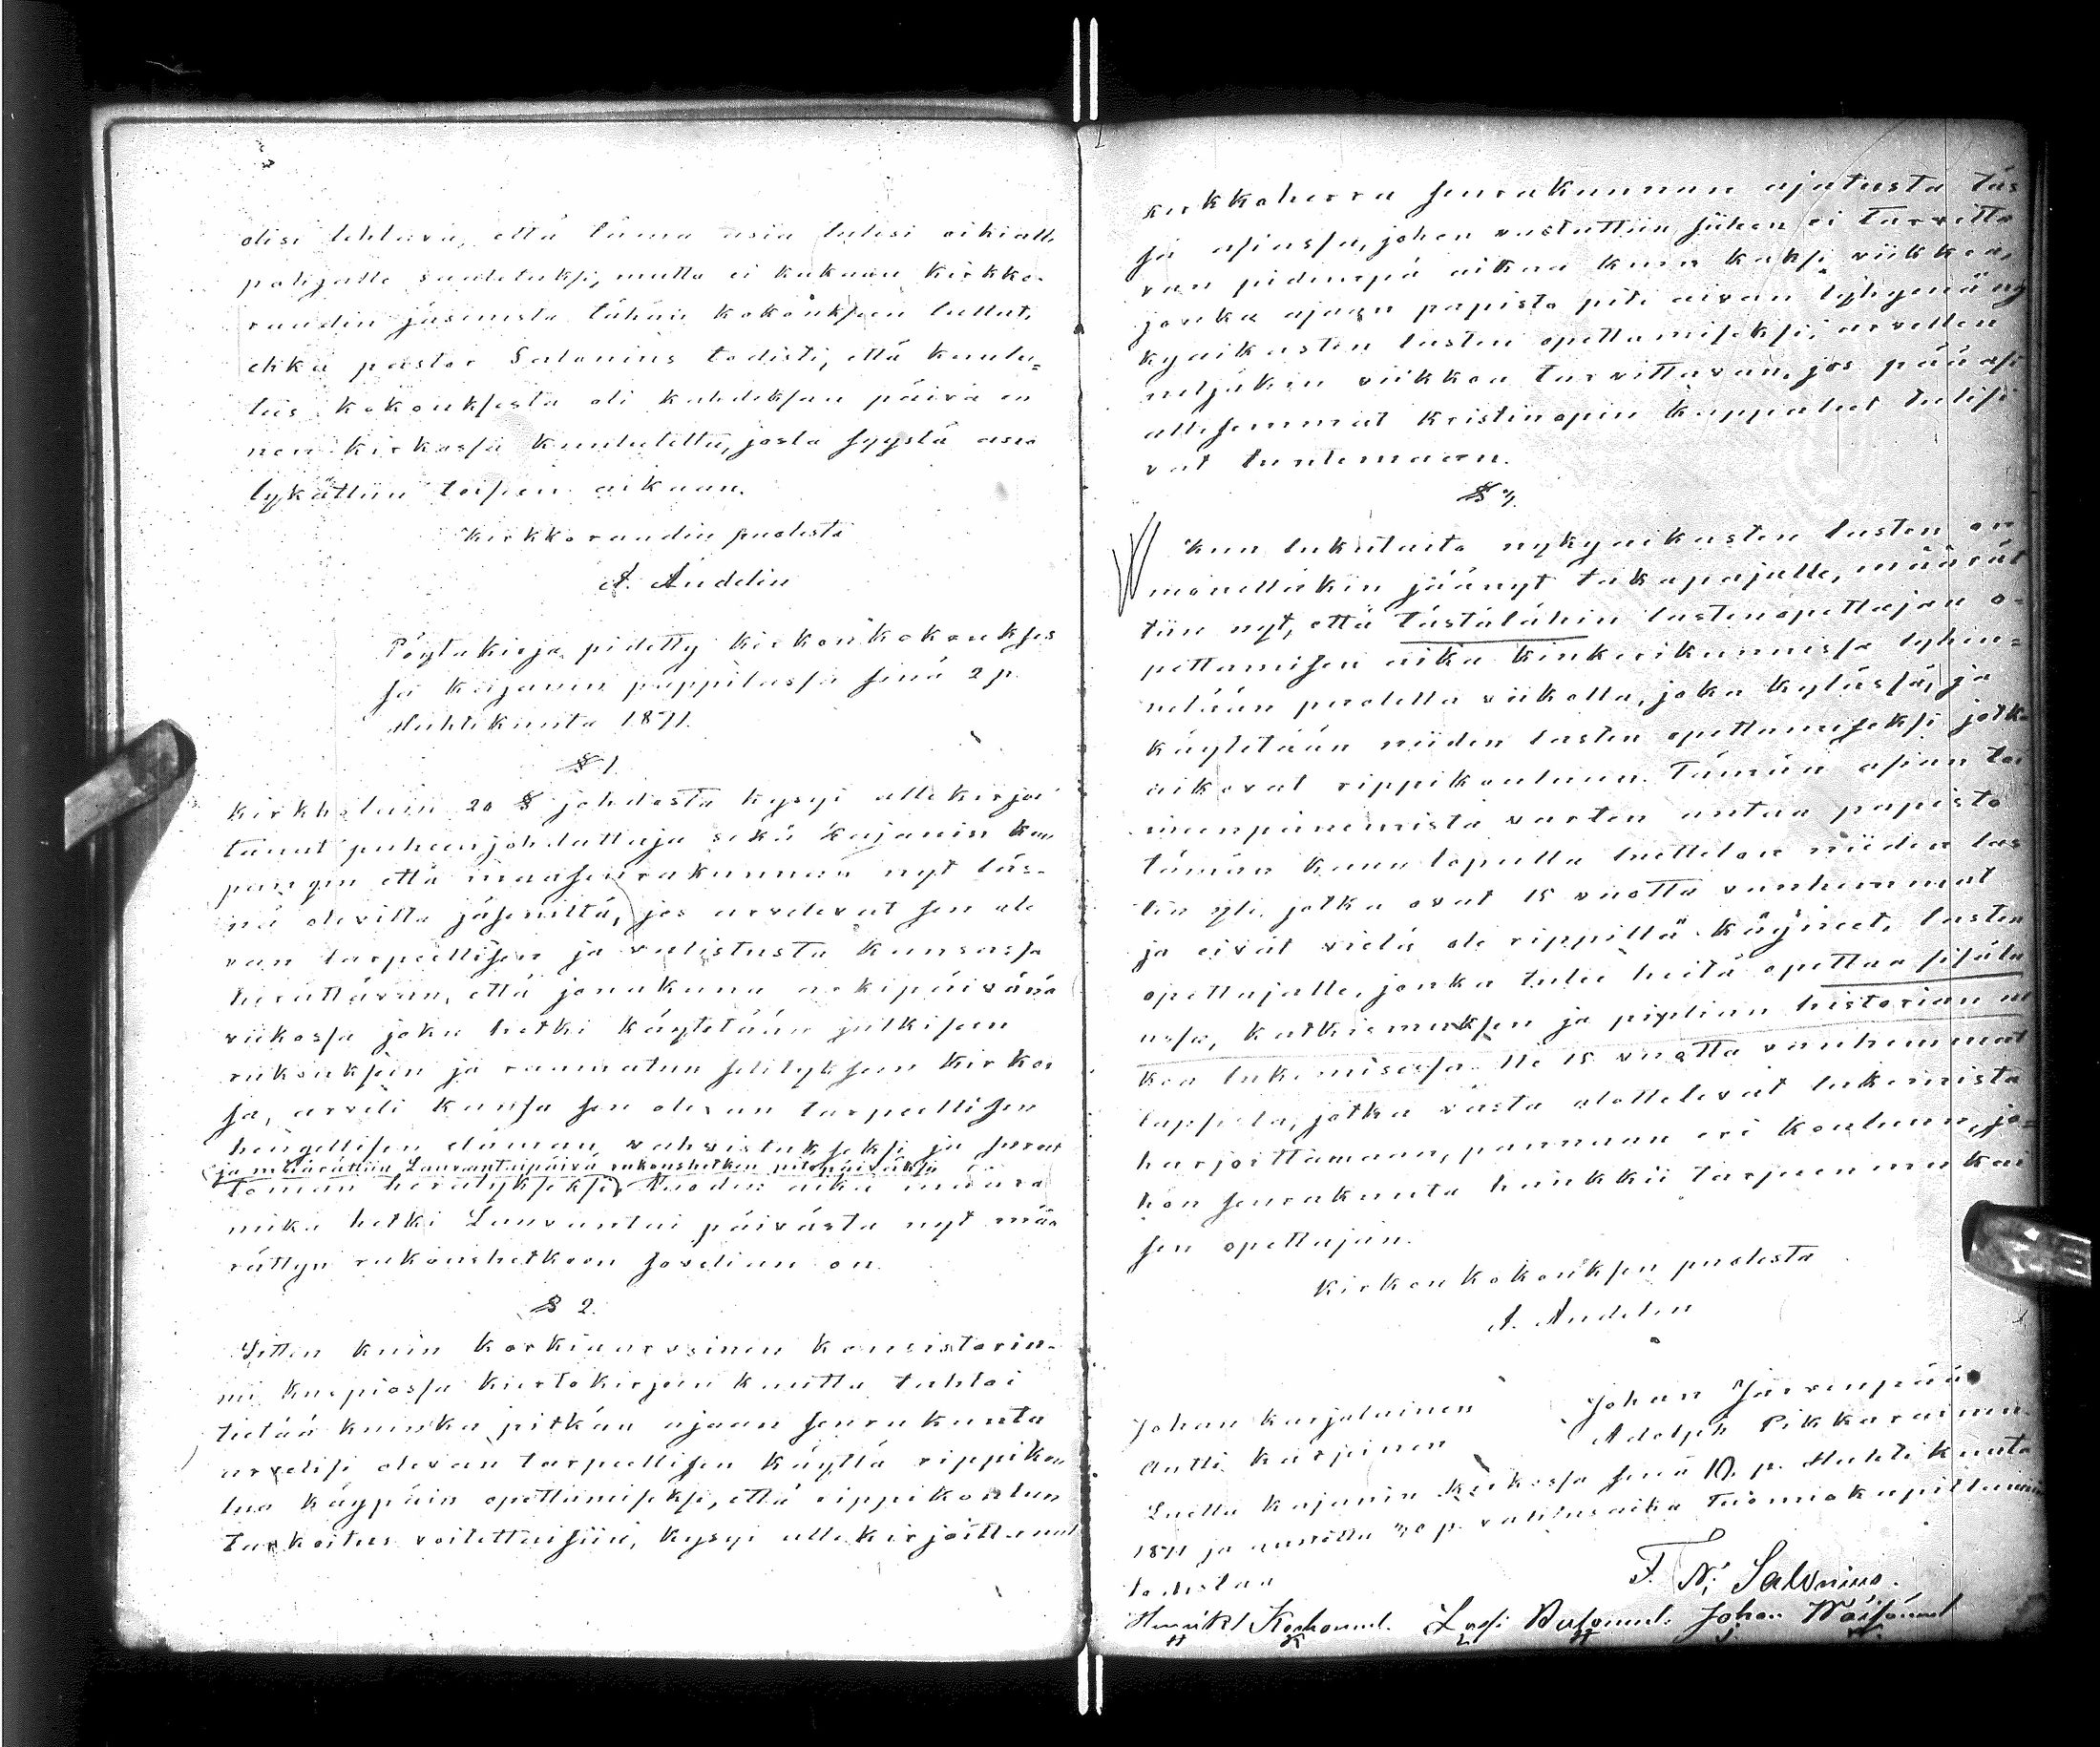 olisi tehtävä, että tämä asia tulisi oikialle
pohjalle saatetuksi, mutta ei kukaan kirkko-
raadin jäsenistä tähän kokouksen tullut,
ehkä pastor Salonius todisti, että kuulu=
tus kokouksesta oli kahdeksan päivä en
nen kirkossa kuulutettu, josta syystä asia
lykättiin toisen aikaan.
Kirkkoraadin puolesta
A. Andelin
Pöytäkirja pidetty kirkonkokoukses
sa Kajanin pappilassa sinä 2 p.
Huhtikuuta 1871.
§ 1.
Kirkkolain 20 § johdosta kysyi allekirjoi
tanut puheenjohdattaja sekä Kajanin kau
pungin että maaseurakunnan nyt läs-
nä olevilta jäseniltä, jos arvelevat sen ole
van tarpeellisen ja valistusta kansassa
herättävän, että jonakuna arkipäivänä
viikossa joku hetki käytetään julkiseen
rukoukseen ja raamatun selitykseen kirkos
sa, arveli kansa sen olevan tarpeellisen
hengellisen elämän vahvistukseksi ja surut
(ja määrättiin Lauvantaipäivä rukoushetken pitopäiväksi
toman herätykseksi) Vuoden aika määrä
mikä hetki Lauvantai päivästä nyt mää
rättyn rukoushetkeen sovelian on.
§ 2.
Sitten kuin korkiaarvoinen konsistoriu-
mi Kuopiossa kiertokirjeen kautta tahtoi
tietää kuinka pitkän ajaan seurakunta
arvelisi olevan tarpeellisen käyttä rippikou
lua käypäin opettamiseksi, että rippikoulun
tarkoitus voitettaisiin, kysyi allekirjoittanut
kirkkoherra seurakunnan ajatusta täs
sä asiassa, johon vastattiin siihen ei tarvitta
van pidempä aikaa kuin kaksi viikkoa,
jonka ajaan papisto piti aivan lyhyenä ny
kyaikasten lasten opettamiseksi, arvellen
neljäkin viikkoa tarvittavan, jos pääasi
allisemmat kristinopin kappaleet tulisi
vat tuntemaan.
§ 3.
Kun lukutaito nykyaikasten lasten on
monellakin jäänyt takapajulle, määrät
tiin nyt, että tästälähin lastenopettajan o-
pettamisen aika kinkerikunnissa lyhen=
netään puolella viikolla, joka kylässä, ja
käytetään niiden lasten opettamiseksi jotka
aikovat rippikouluun. Tämän asian toi
meenpanemista varten antaa papisto
tämän kuun lopulla luettelon niiden las
ten yli, jotka ovat 15 vuotta vanhemmat
ja eivät vielä ole rippillä käyneet, lasten
opettajalle, jonka tulee heitä opettaa sisälu
ussa, katkismuksen ja piplian historian ul
koa lukemisessa. Ne 15 vuotta vanhemmat
lapset, jotka vasta alottelevat lukemista
harjoittamaan, pannaan eri kouluun, jo=
hon seurakunta hankkii tarpeenmukai
sen opettajan.
Kirkonkokouksen puolesta
A. Andelin
Johan Karjalainen Johan Järvenpää
Antti Karpinen Adolph Pikkarainen
Luettu Kajanin kirkossa sinä 10 p. Huhtikuuta
1871 ja annettu 30 p. valitusaika Tuomiokapitlumiin
todistaa
F. N. Salonius.
Henrikl Lassi Johan